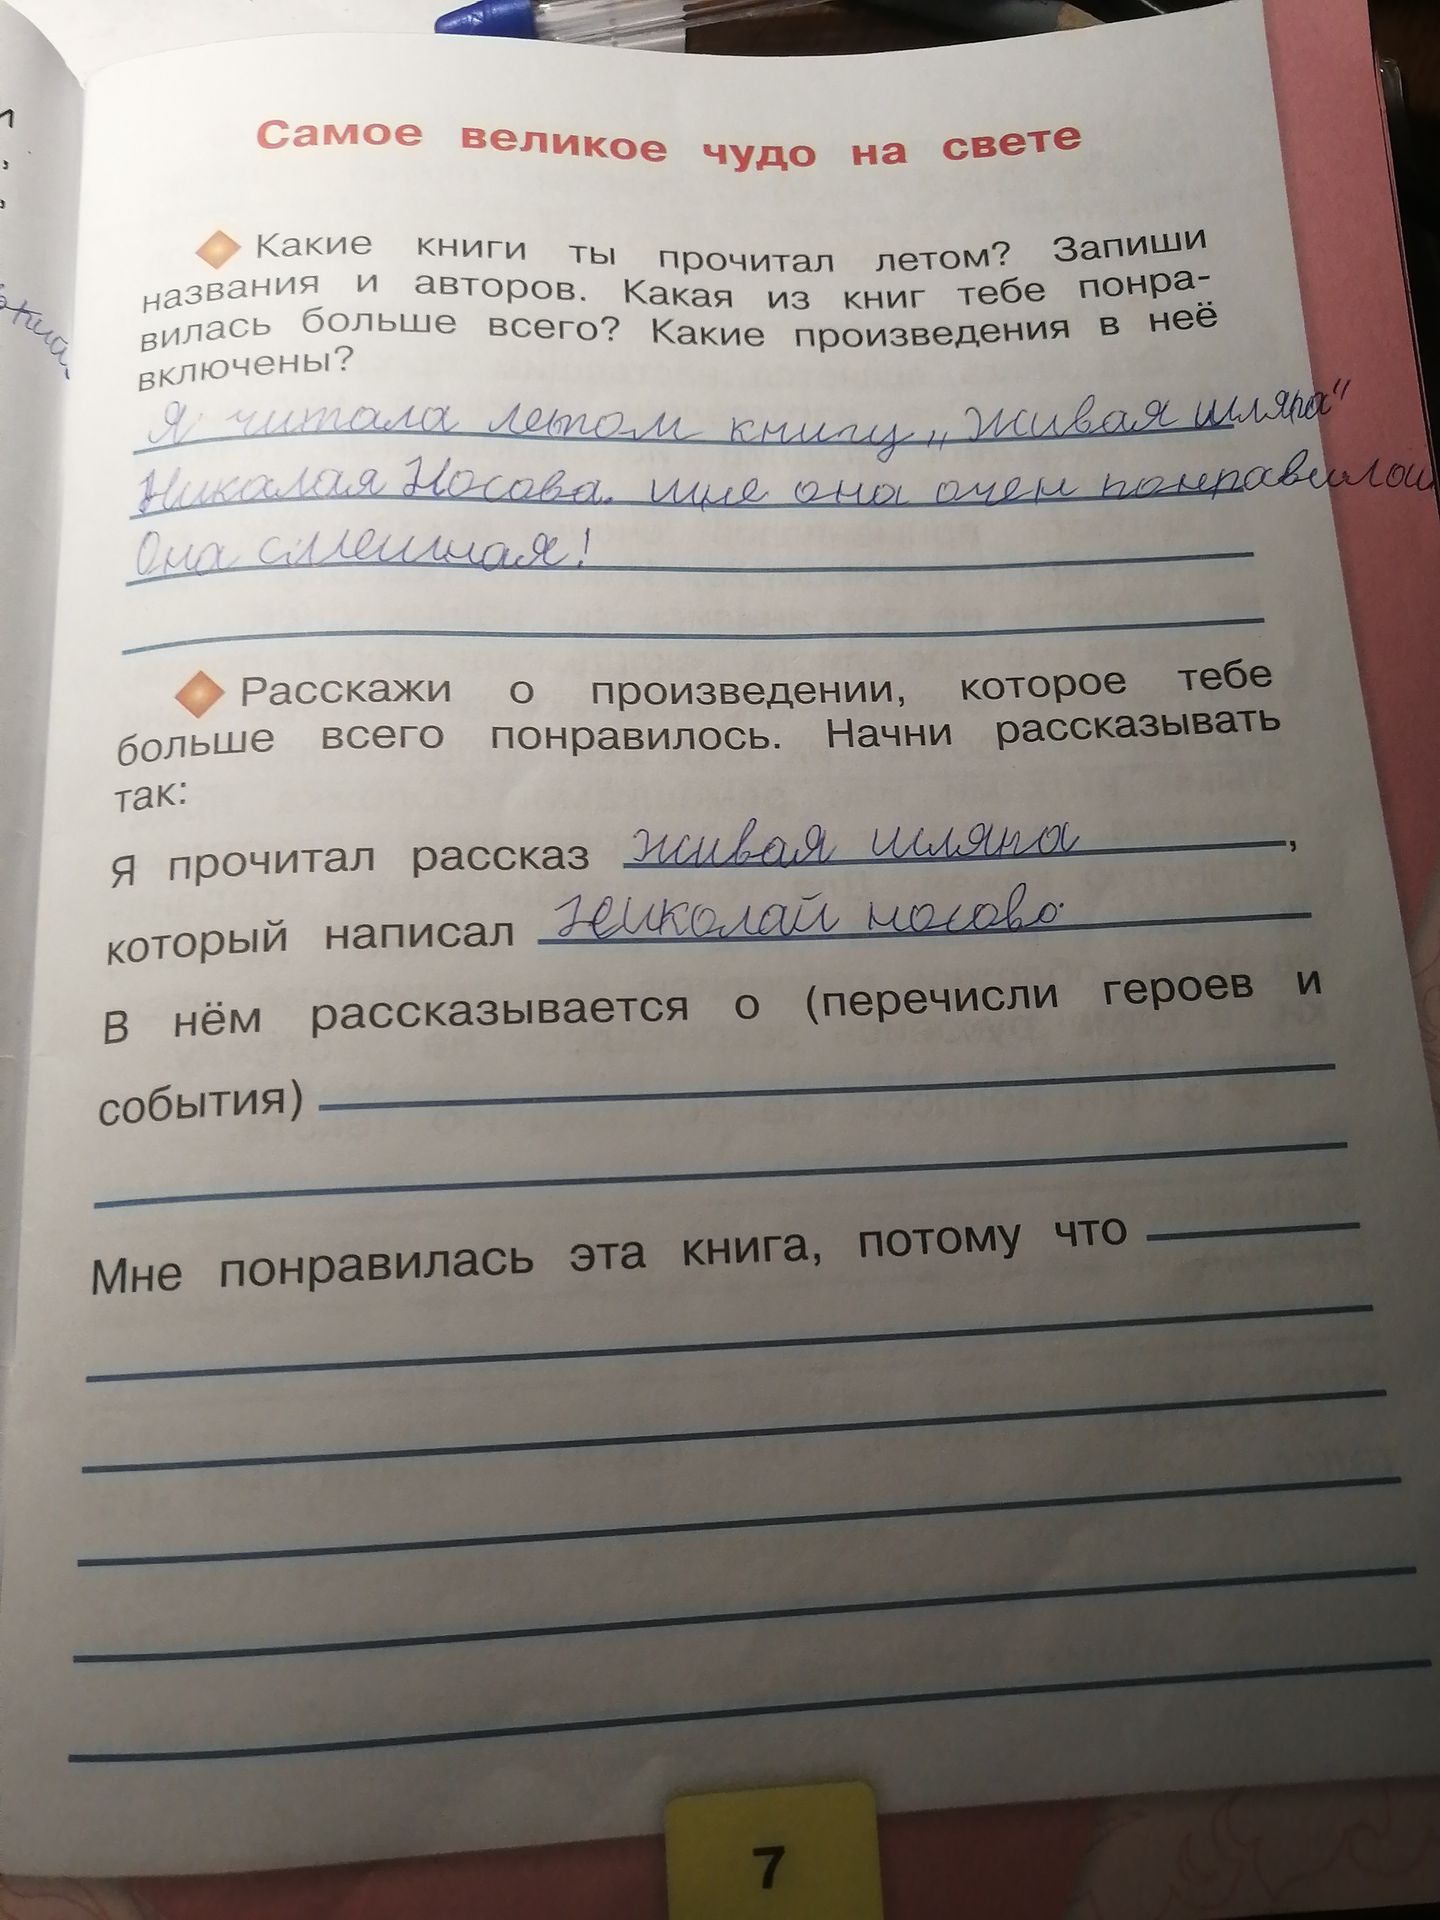 Самое великое чудо на свете
Какие книги ты прочитал летом? Запиши
названия и авторов. Какая из книг тебе понра-
вилась больше всего? Какие произведения в неё
включены?
Я читала летом книгу „Живая шляпа"
Николая Носова. мне она очен понравилош
Она смешная!
Расскажи о произведении, которое тебе
больше всего понравилось. Начни рассказывать
так:
Я прочитал рассказ живая шляпа,
который написал Николай носово.
В нём рассказывается о (перечисли героев и
события)
Мне понравилась эта книга, потому что
7